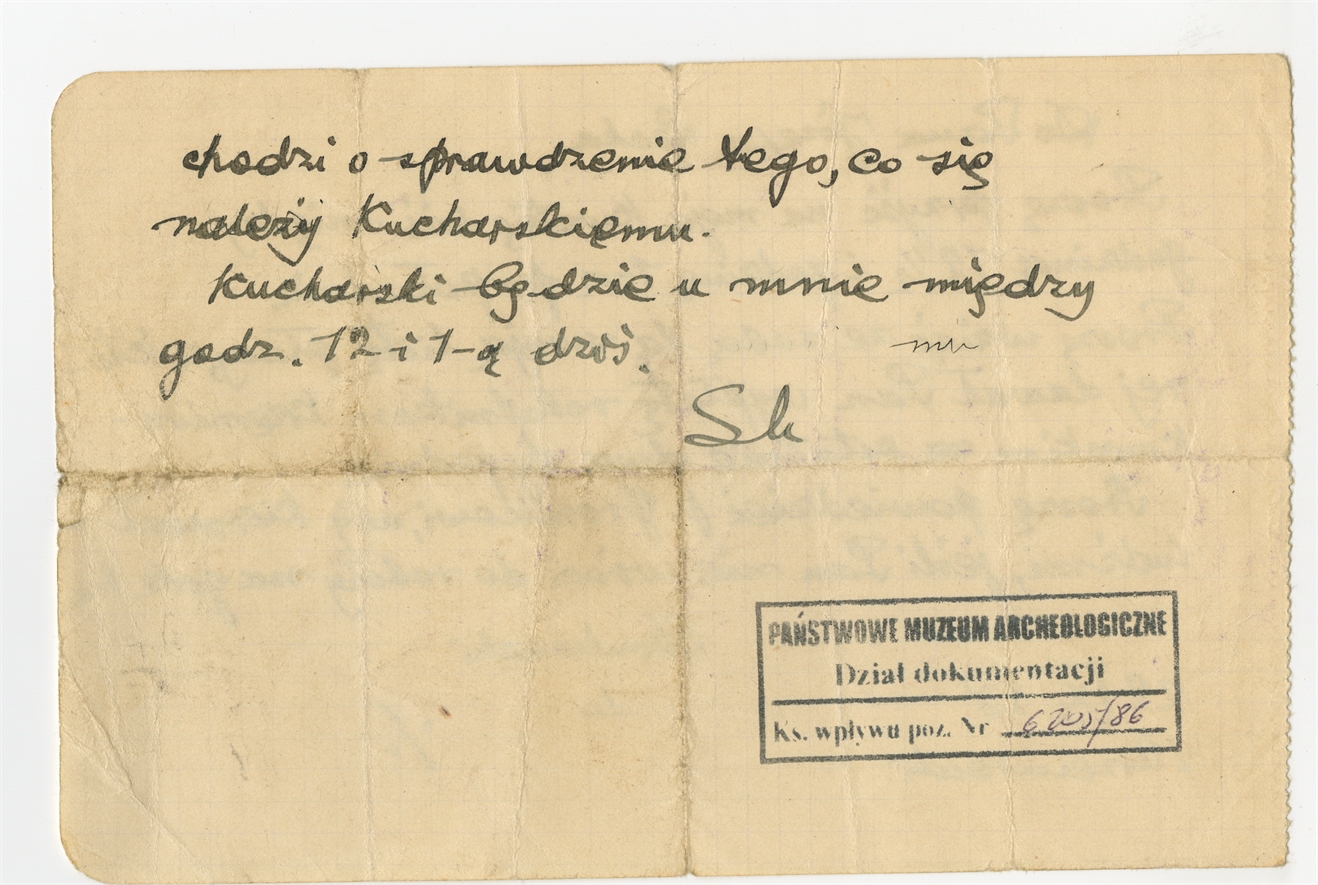 chodzi o sprawdzenie tego, co się
należy Kucharskiemu.
Kucharski będzie u mnie między
godz. 12 i 1-ą dziś.
PAŃSTWOWE MUZEUM ARCHEOLOGICZNE
Dział dokumentacji
Ks. wpływu poz. Nr